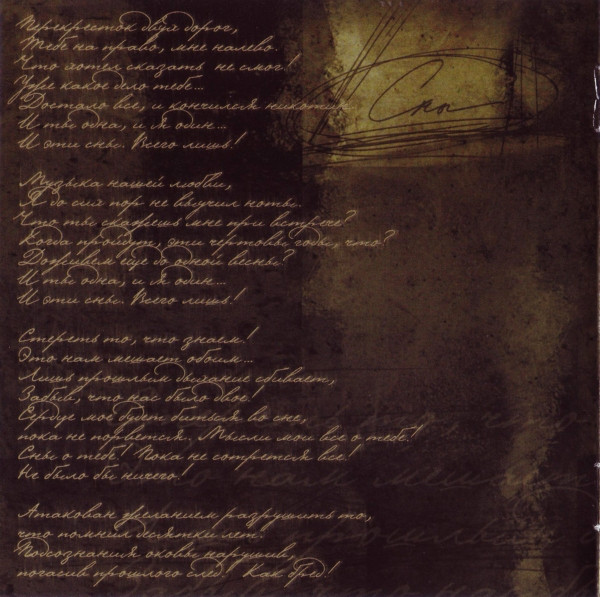 Сны
Перекресток двух дорог,
Тебе на право, мне налево.
Что хотел сказать не смог!
Уже какое дело тебе...
Достало все, и кончился никотин
И ты одна, и я один...
И эти сны. Всего лишь!
Музыка нашей любви,
Я до сих пор не выучил ноты.
Что ты скажешь мне при встрече?
Когда пройдут, эти чертовы годы, что?
Доживем еще до одной весны?
И ты одна, и я один...
И эти сны. Всего лишь!
Стереть то, что знаем!
Это нам мешает обоим...
Лишь прошлым дыхание сбивает,
Забыв, что нас было двое!
Сердце мое будет биться во сне,
пока не порвется. Мысли мои все о тебе!
Сны о тебе! Пока не сотрется все!
Не было бы ничего!
Атакован желанием разрушить то,
что помнил десятки лет.
Подсознания оковы нарушив,
погасив прошлого след! Как бред!